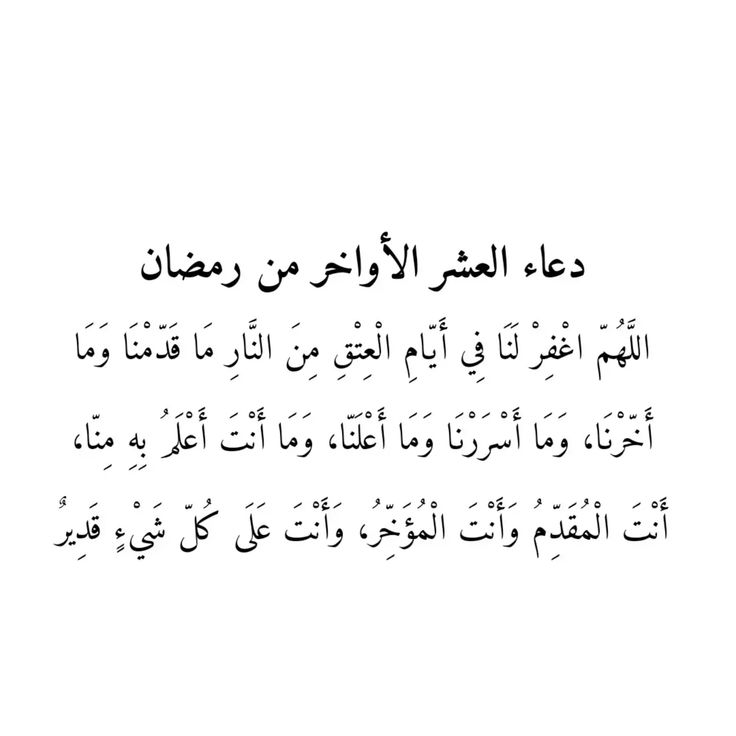 دعاء العشر الأواخر من رمضان
اللَّهُمّ اغْفِرْ لَنَا فِي أَيّامِ الْعِتْقِ مِنَ النَّارِ مَا قَدّمْنَا وَمَا
أَخّرْنَا، وَمَا أَسْرَرْنَا وَمَا أَعْلَنّا، وَمَا أَنْتَ أَعْلَمُ بِهِ مِنّا،
أَنْتَ الْمُقَدِّمُ وَأَنْتَ الْمُؤَخِّرُ، وَأَنْتَ عَلَى كُلّ شَيْءٍ قَدِيرٌ